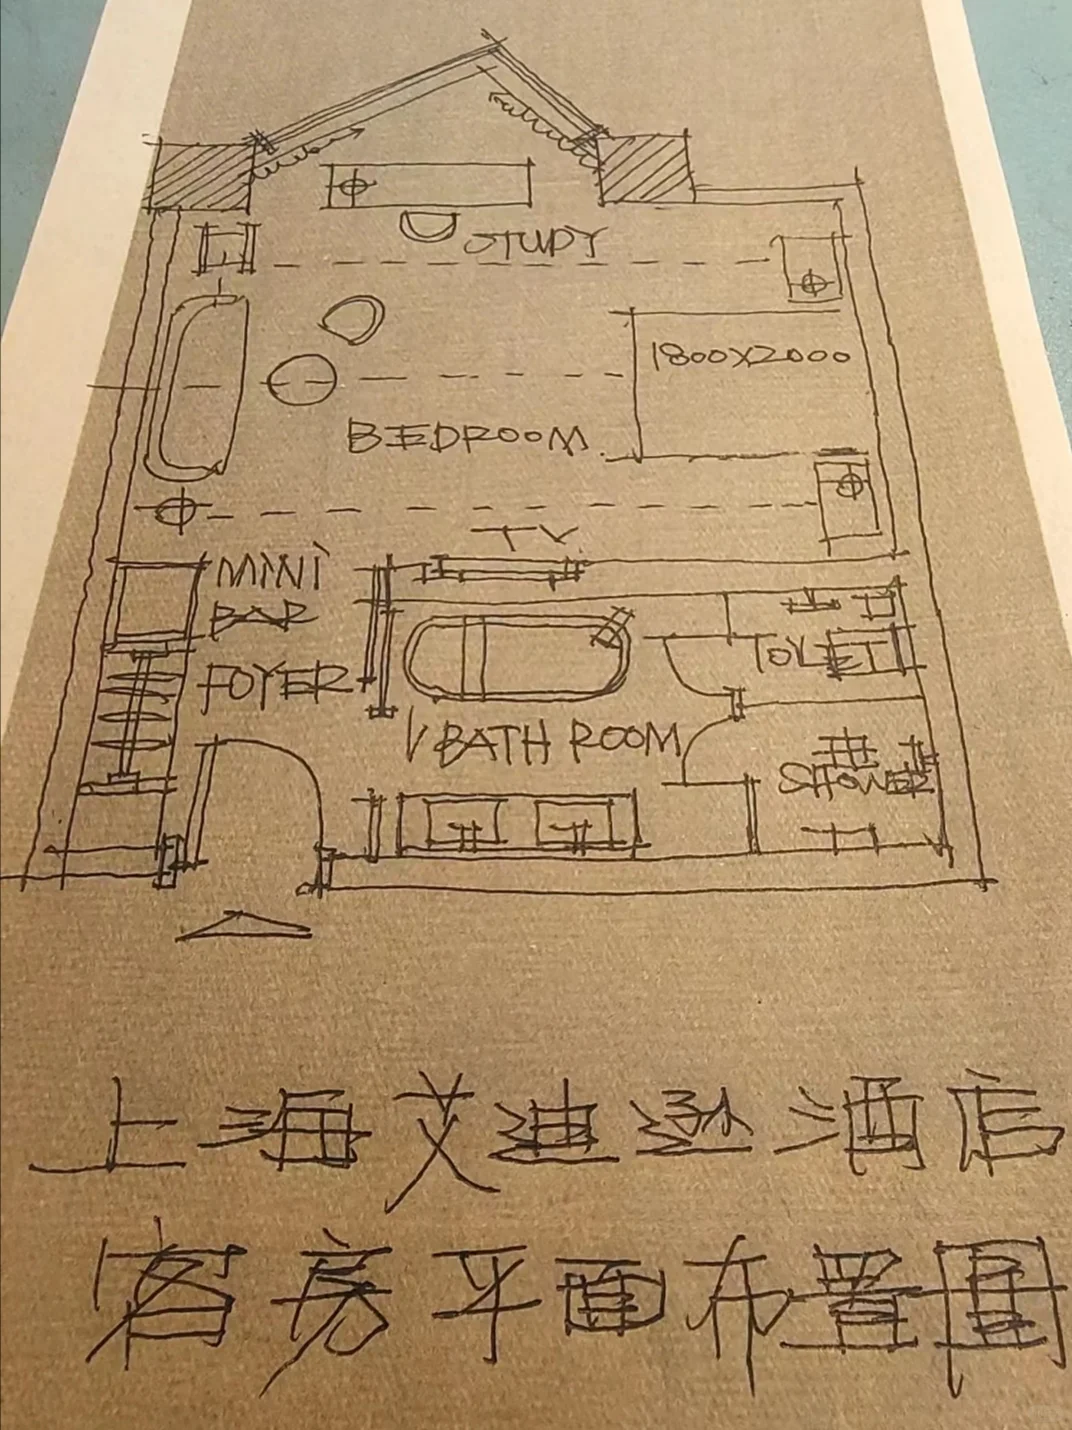 STUDY
1800X2000
BEDROOM
TV
MINI
BAR
FOYER
TOLET
BATH ROOM
SHOWER
上海艾迪逊酒店
客房平面布置图